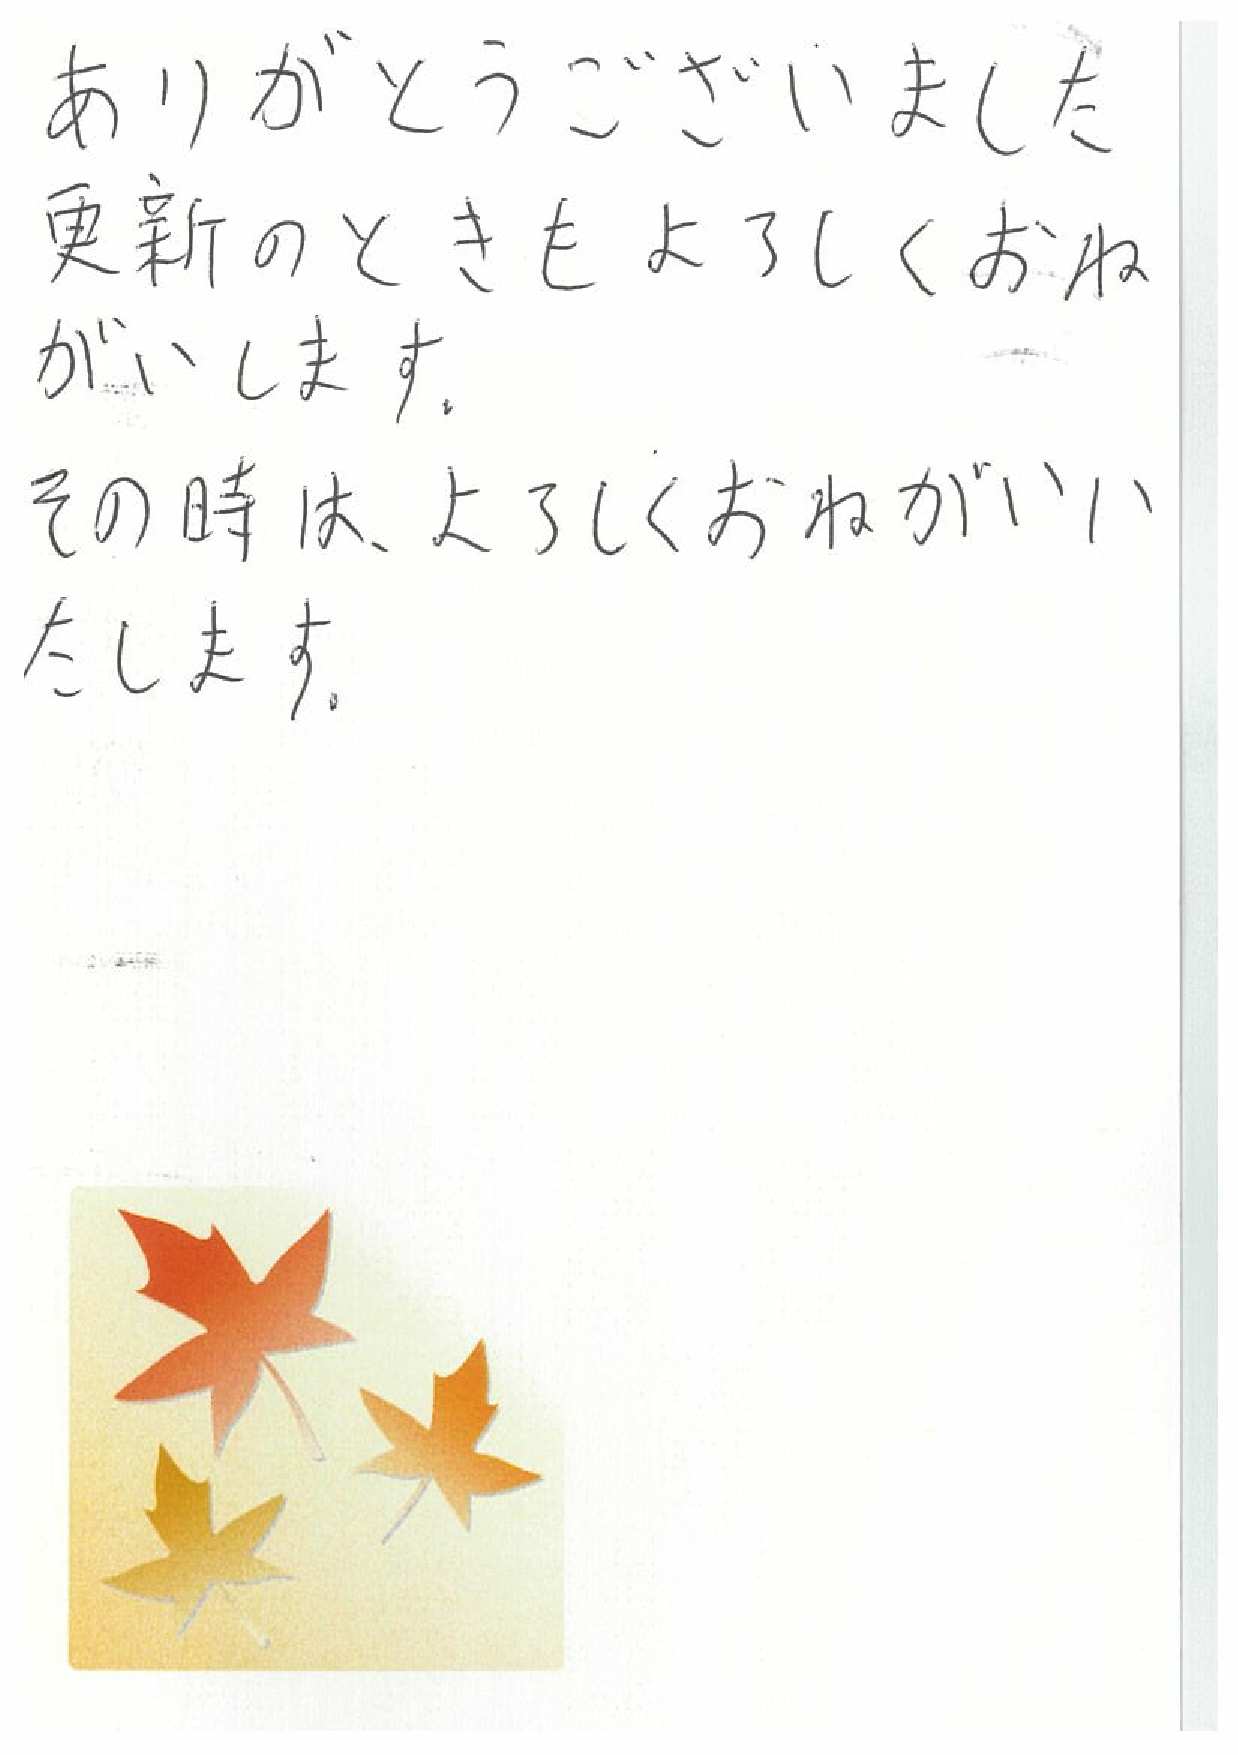 ありがとうございました
更新のときもよろしくおね
がいします。
その時は、よろしくおねがいい
たします。